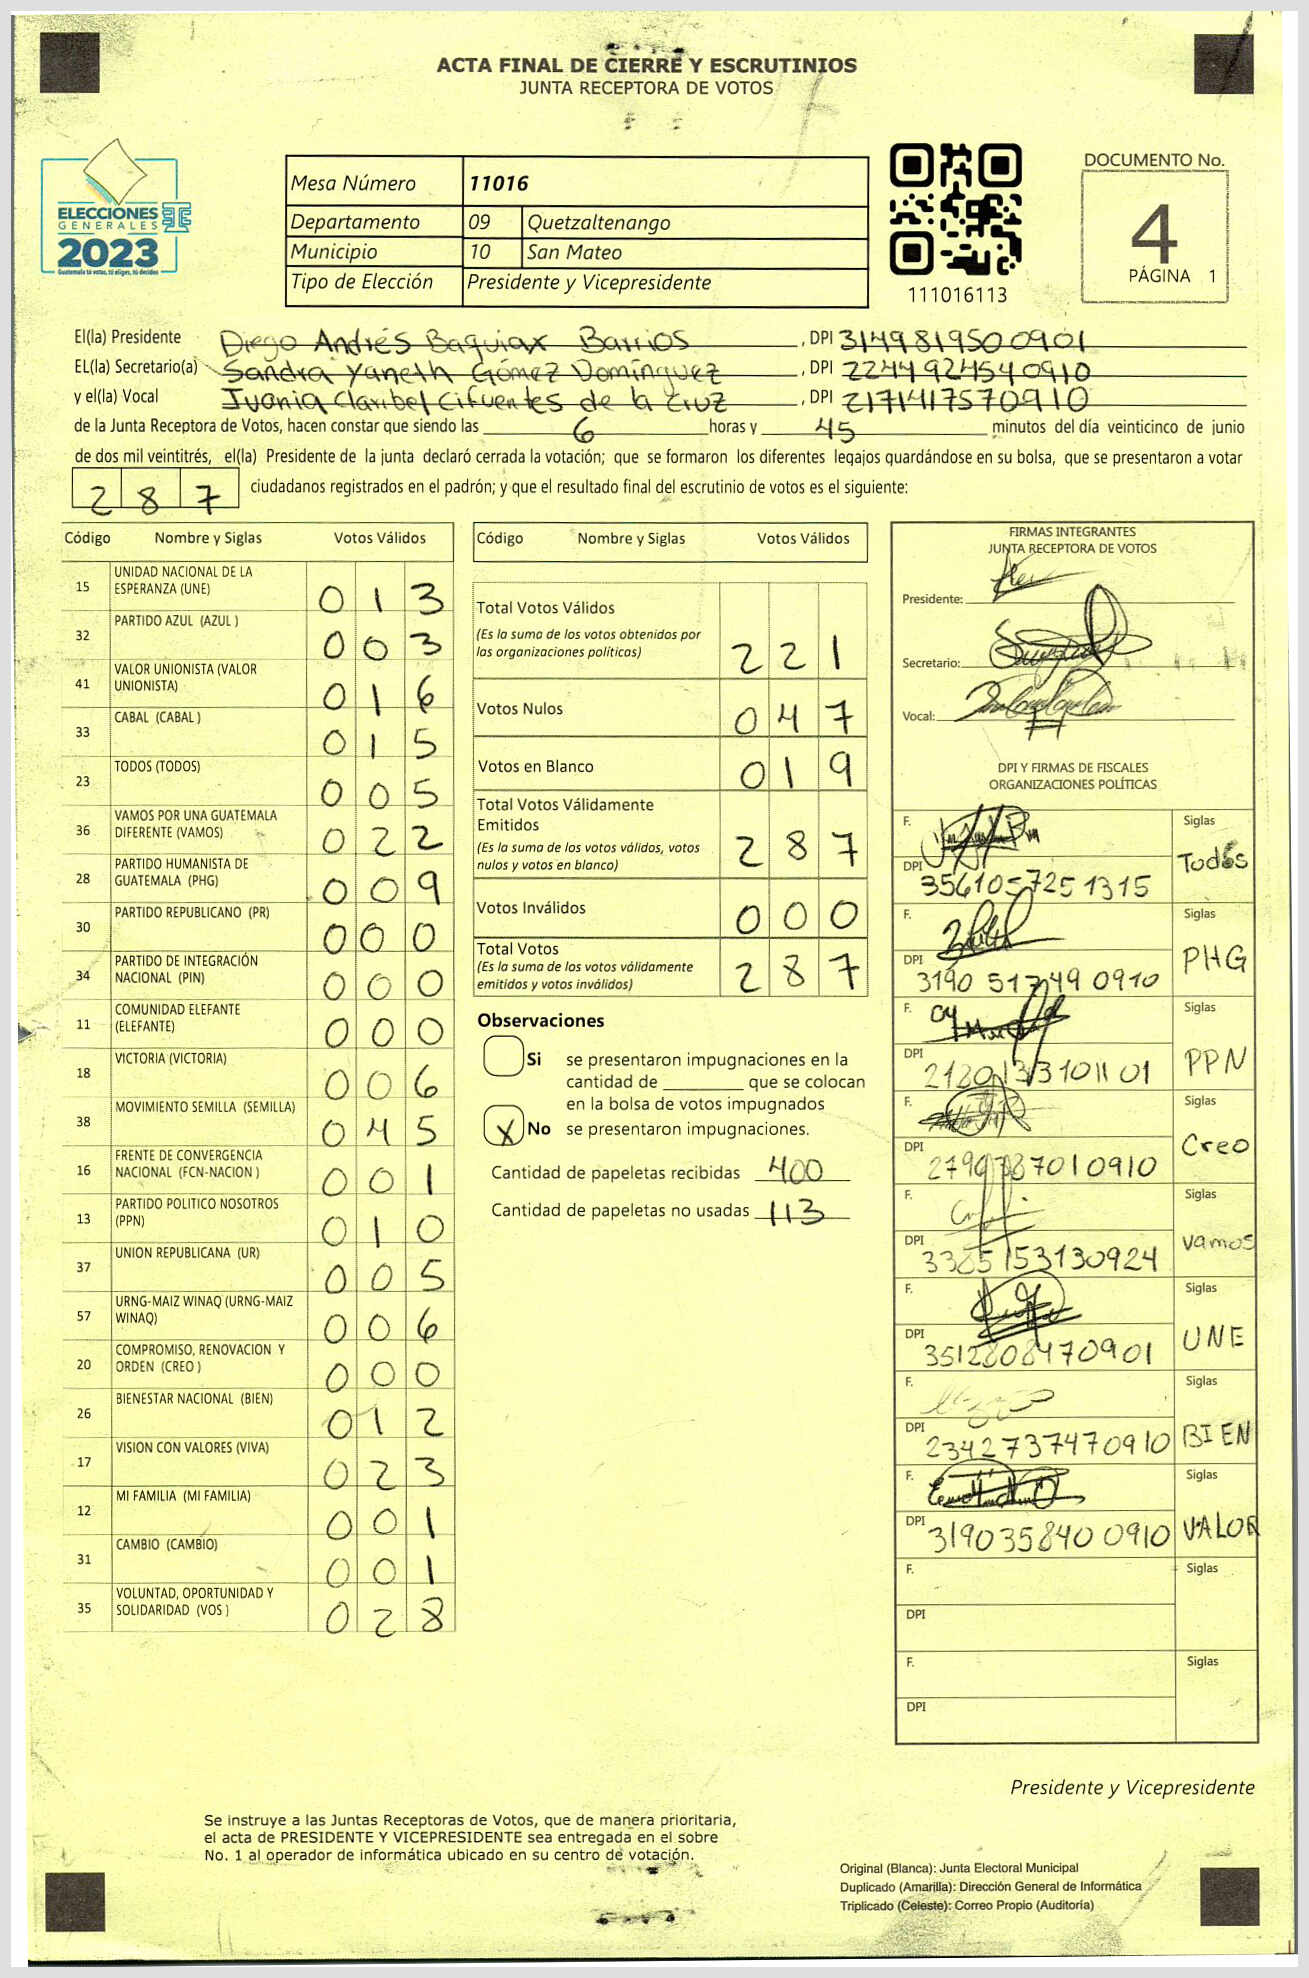 ACTA FINAL DE CIERRE Y ESCRUTINIOS
JUNTA RECEPTORA DE VOTOS
ELECCIONES
GENERALES
2023
Guatemala tú votas, tú eliges, tú decides
Mesa Número 11016
Departamento 09 Quetzaltenango
Municipio 10 San Mateo
Tipo de Elección Presidente y Vicepresidente
111016113
DOCUMENTO No.
4
PÁGINA 1
El(la) Presidente Diego Andrés Baquiax Barrios, DPI 3149819500901
EL(la) Secretario(a) Sandra Yaneth Gómez Domínguez, DPI 2244924540910
y el(la) Vocal Ivania Claribel Cifuentes de la Cruz, DPI 2171417570910
de la Junta Receptora de Votos, hacen constar que siendo las 6 horas y 45 minutos del día veinticinco de junio
de dos mil veintitrés, el(la) Presidente de la junta declaró cerrada la votación; que se formaron los diferentes legajos guardándose en su bolsa, que se presentaron a votar
287 ciudadanos registrados en el padrón; y que el resultado final del escrutinio de votos es el siguiente:
Código Nombre y Siglas Votos Válidos
15 UNIDAD NACIONAL DE LA ESPERANZA (UNE) 013
32 PARTIDO AZUL (AZUL ) 003
41 VALOR UNIONISTA (VALOR UNIONISTA) 016
33 CABAL (CABAL ) 015
23 TODOS (TODOS) 005
36 VAMOS POR UNA GUATEMALA DIFERENTE (VAMOS) 022
28 PARTIDO HUMANISTA DE GUATEMALA (PHG) 009
30 PARTIDO REPUBLICANO (PR) 000
34 PARTIDO DE INTEGRACIÓN NACIONAL (PIN) 000
11 COMUNIDAD ELEFANTE (ELEFANTE) 000
18 VICTORIA (VICTORIA) 006
38 MOVIMIENTO SEMILLA (SEMILLA) 045
16 FRENTE DE CONVERGENCIA NACIONAL (FCN-NACION ) 001
13 PARTIDO POLITICO NOSOTROS (PPN) 010
37 UNION REPUBLICANA (UR) 005
57 URNG-MAIZ WINAQ (URNG-MAIZ WINAQ) 006
20 COMPROMISO, RENOVACION Y ORDEN (CREO ) 000
26 BIENESTAR NACIONAL (BIEN) 012
17 VISION CON VALORES (VIVA) 023
12 MI FAMILIA (MI FAMILIA) 001
31 CAMBIO (CAMBIO) 001
35 VOLUNTAD, OPORTUNIDAD Y SOLIDARIDAD (VOS ) 028
Código Nombre y Siglas Votos Válidos
Total Votos Válidos
(Es la suma de los votos obtenidos por
las organizaciones políticas) 221
Votos Nulos 047
Votos en Blanco 019
Total Votos Válidamente
Emitidos
(Es la suma de los votos válidos, votos
nulos y votos en blanco) 287
Votos Inválidos 000
Total Votos
(Es la suma de los votos válidamente
emitidos y votos inválidos) 287
Observaciones
Si se presentaron impugnaciones en la
cantidad de ________ que se colocan
en la bolsa de votos impugnados
X No se presentaron impugnaciones.
Cantidad de papeletas recibidas 400
Cantidad de papeletas no usadas 113
FIRMAS INTEGRANTES
JUNTA RECEPTORA DE VOTOS
Presidente:
Secretario:
Vocal:
DPI Y FIRMAS DE FISCALES
ORGANIZACIONES POLÍTICAS
F. Siglas
DPI 3561057251315 Todos
F. Siglas
DPI 3190 517490910 PHG
F. Siglas
DPI PPN
F. Siglas
DPI Creo
F. Siglas
DPI 3385153130924 Vamos
F. Siglas
DPI 3512808470901 UNE
F. Siglas
DPI 2342737470910 BIEN
F. Siglas
DPI 3190358400910 VALOR
F. Siglas
DPI
F. Siglas
DPI
Presidente y Vicepresidente
Se instruye a las Juntas Receptoras de Votos, que de manera prioritaria,
el acta de PRESIDENTE Y VICEPRESIDENTE sea entregada en el sobre
No. 1 al operador de informática ubicado en su centro de votación.
Original (Blanca): Junta Electoral Municipal
Duplicado (Amarilla): Dirección General de Informática
Triplicado (Celeste): Correo Propio (Auditoría)